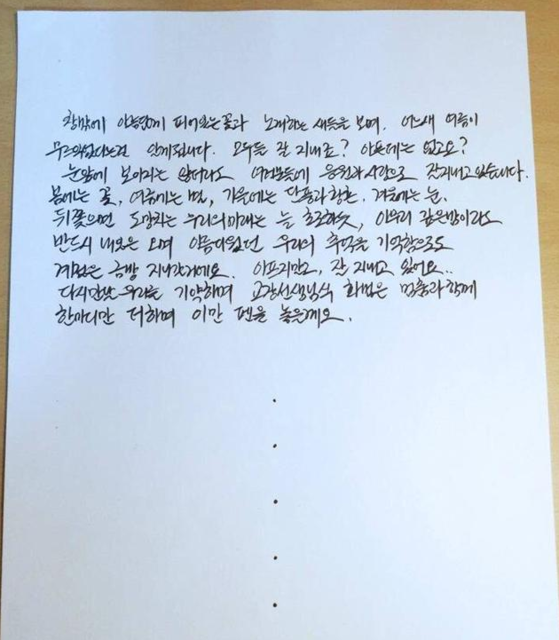 창밖에 아름답게 피어있는 꽃과 노래하는 새들을 보며, 어느새 여름이
무르익었다는걸 알게됩니다. 모두들 잘 지내죠? 아픈데는 없고요?
눈앞에 보이지는 않더라도 여러분들의 응원과 사랑으로 잘지내고있습니다.
봄에는 꽃, 여름에는 별, 가을에는 단풍과 황혼, 겨울에는 눈.
뒤쫓으면 도망치는 우리의미래는 늘 흐르하듯, 아무리 깊은밤이라도
반드시 내일은 오며 아름다웠던 우리의 추억을 기억함으로
계절은 금방 지나갈거에요. 아프지말고, 잘 지내고 있어요..
다시만날 우리를 기약하며 교장선생님식 화법은 멈춤과 함께
한마디만 더하며 이만 펜을 놓을게요.
.
.
.
.
.